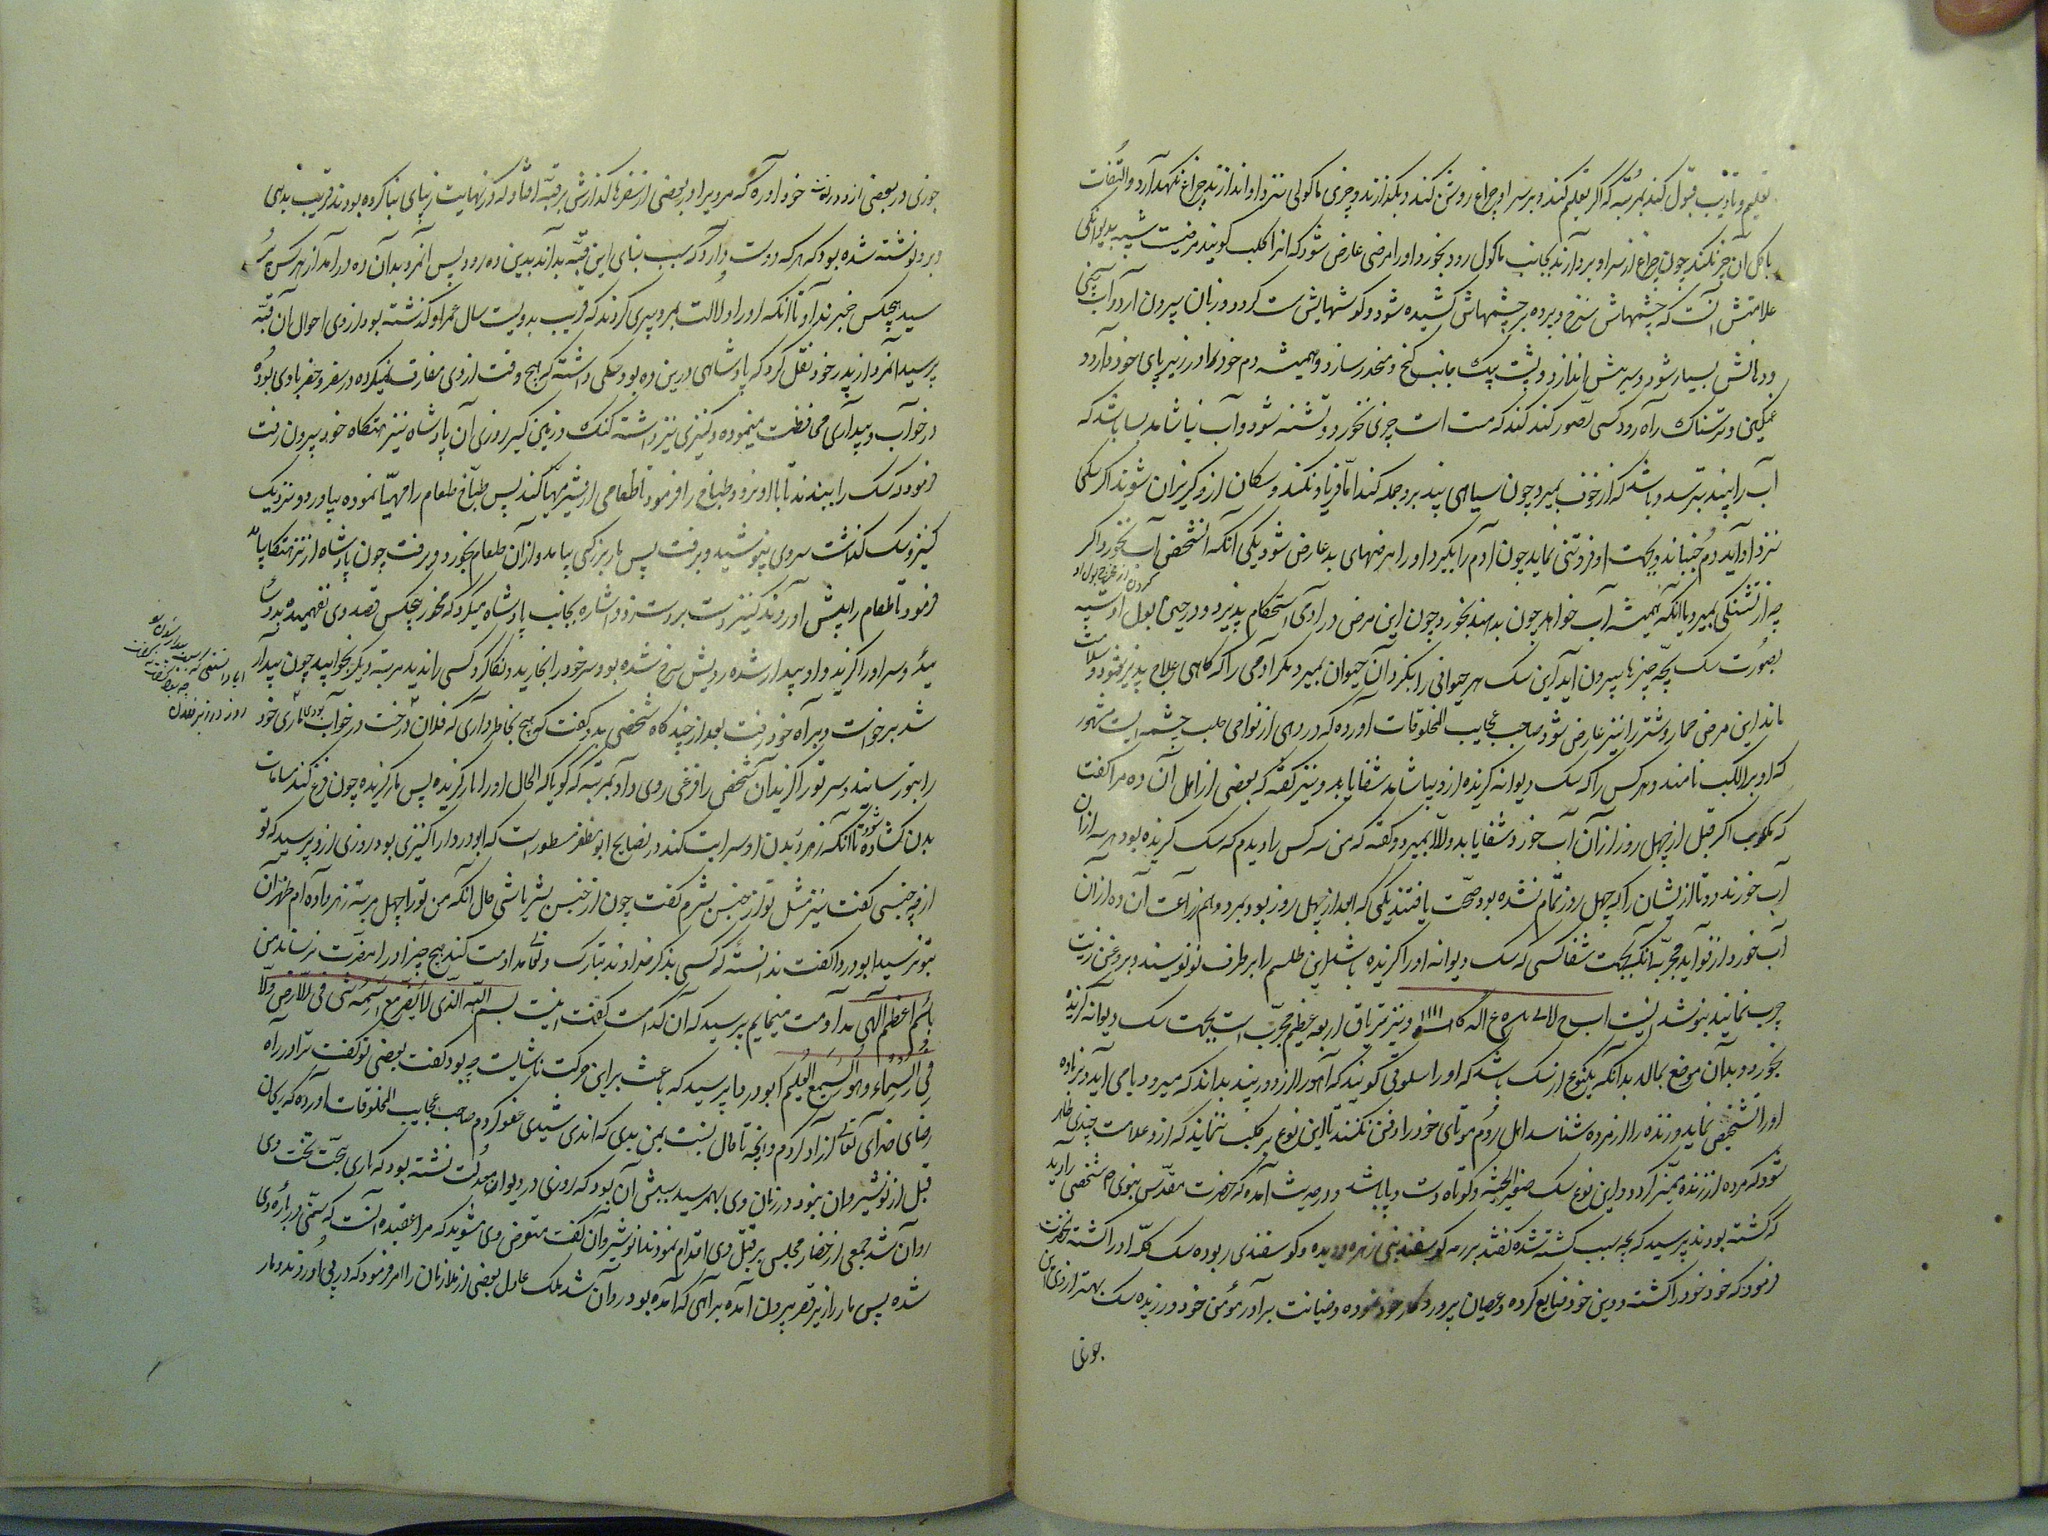 تعلیم و تادیب قبول کند بمرتبه که اگر تعلیم کنند و بر سر او چراغ روشن کنند و بگذارند و چیزی ماکولی نزد او اندازند چراغ نگهدارد و التفات
باکل آن چیز نکند چون چراغ از سر او بردارند بجانب ماکول رود بخورد و او را مرضی عارض شود که انرا کلب گویند مرضیست شبیه بدیوانگی
علامتش آنست که چشمهاش سرخ و پرده بر چشمهاش کشیده شود و گوشهایش سست گردد و زبان بیرون آرد و آب بینی
و دهانش بسیار شود و سر پیش اندازد و پشت بیک جانب کج و منحدر سازد و همیشه دم خود را در زیر پای خود دارد و
غمگین و ترسناک راه رود کسی تصور کند که مست است چیزی نخورد و تشنه شود و آب نیاشامد بسا باشد که
آب را بیند بترسد و باشد که از خوف بمیرد و چون سیاهی بیند برو حمله کند اما فریاد نکند و سگان ازو گریزان شوند اگر سگی
نزد او آید دم جنباند و بجهت او فروتنی نماید چون آدم را بگیرد او را مرضهای بد عارض شود یکی آنکه آنشخص آب نخورد اگر
چه از تشنگی بمیرد با آنکه همیشه آب خواهد چون بدهند نخورد و چون این مرض در آدمی استحکام پذیرد و در حین بول او شبیه
کردن از مخرج بول او
بصورت سگ بچه چیزها بیرون آید این سگ هر حیوانی را بگزد آن حیوان بمیرد مگر آدمی را که گاهی علاج پذیر شود و سلامت
ماند این مرض حمار و شتر را نیز عارض شود صاحب عجایب المخلوقات آورده که در دهی از نواحی حلب چشمه ایست مشهور
که او بئر الکلب نامند و هر کس را که سگ دیوانه گزیده ازو بیاشامد شفا یابد و نیز گفته که بعضی از اهل آن ده مرا گفت
که مکلوب اگر قبل از چهل روز از آن آب خورد شفا یابد و الا بمیرد و گفته که من سه کس را دیدم که سگ گزیده بود هر سه ازان
آب خوردند دو تا از ایشان را که چهل روز تمام نشده بود صحت یافتند یکی که بعد از چهل روز بود بمرد و اهم زراعت آن ده ازان
آب خورد از فواید مجربه آنکه بجهت شفا کسی که سگ دیوانه او را گزیده باشد این طلسم را بر ظرف نو نویسند و بروغن زیت
چرب نمایند بنوشد اینست و نیز تریاق اربعه عظیم مجرب است بجهت سگ دیوانه گزیده
بخورد و بدان موضع بمالد بدانکه یکنوع از سگ باشد که او را سلوقی گویند که آهو را از دور بیند بداند که میرود یا می آید و نر و ماده
او را تشخیص نماید و زنده را از مرده شناسد اهل روم موتای خود را دفن نکنند تا این نوع بر کلب ننمایند که ازو علامت چندی ظاهر
شود که مرده از زنده متمیز گردد و این نوع سگ صغیر الجثه و کوتاه دست و پا باشد و در حدیث آمده که حضرت مقدس نبوی ص شخصی را دید
که کشته بودند پرسید که بچه سبب کشته شده گفتند بر رمه گوسفند بنی زهره دویده و گوسفندی ربوده سگ گله او را کشته آنحضرت
فرمود که خود خود را کشته و دین خود ضایع کرده و عصیان پروردگار خود نموده و خیانت برادر مؤمن خود ورزیده سگ بهتر ازوی ابن
جوزی
جوزی در بعضی از خود آورده که مردی را در بعضی از سفرها گذارش بر قبه افتاد که در نهایت زیبای بنا کرده بودند قریب بدهی
و برو نوشته شده بود که هر که دوست دارد که سبب بنای این قبه بداند بدین ده رود پس آنمرد بدان ده درآمد از هر کس پر
سید هیچکس خبر نداد تا آنکه او را دلالت بمرد پیری کردند که قریب بدویست سال عمر او گذشته بود از وی احوال آن قبه
پرسید آنمرد از پدر خود نقل کرد که پادشاهی درین ده بود سگی داشته که هیچ وقت از وی مفارقت نمیکرده در سفر و حضر با وی بوده
در خواب و بیداری محافظت مینموده و کنیزی نیز داشته گنگ و زمین گیر روزی آن پادشاه نیز بنزهتگاه خود بیرون رفت
فرمود که سگ را ببندند تا با او نرود و طباخ را فرمود تا طعامی از شیر مهیا کند پس طباخ طعام را مهیا نموده بیاورد و نزدیک
کنیز و سگ گذاشت سر وی نپوشید و برفت پس مار بزرگی بیامد و ازان طعام بخورد و برفت چون پادشاه از نزهتگاه بیامد
فرمود تا طعام را پیش آوردند کنیز دست بر دست زد و اشاره بجانب پادشاه میکرد که مخور هیچکس قصد وی نفهمیده بود
میداد و سر او را گزید و او بیدار شده رویش سرخ شده بود و سر خود را بخارید و نگاه کرد کسی را ندید مرتبه دیگر بخوابید چون بیدار
شد برخواست و براه خود رفت بعد از چند گاه شخصی بدو گفت که هیچ بخاطر داری که فلان درخت در خواب بودی ماری خود
روز در زیر فلان
را بتو رسانید و سر تو را گزید آن شخص را فزعی روی داد بمرتبه که گویا که الحال او را مار گزیده پس مار گزیده چون فزع کند مسامات
بدن گشاده شود تا آنکه زهر و بدن او سرایت کند در نصایح ابو مظفر مسطور است که ابو دردا را کنیزی بود روزی ازو پرسید که تو
از چه جنسی گفت نیز مثل تو از جنس بشرم گفت چون از جنس بشر باشی حال آنکه من تو را چهل مرتبه زهر داده ام ضرری ازان
بتو نرسید ابو دردا گفت ندانسته که کسی بذکر خداوند تبارک و تعالی مداومت کند هیچ چیز او را مضرت نرساند من
باسم اعظم الهی مداومت مینمایم پرسید که آن کدامست گفت اینست بسم الله الذی لا یضر مع اسمه شئ فی الارض ولا
فی السماء وهو السمیع العلیم ابو دردا پرسید که باعث بر این حرکت ناشایست چه بود گفت بغض تو گفت ترا در راه
رضای خدای تعالی آزاد کردم و آنچه تا حال نسبت بمن بدی که اندیشیدی عفو کردم صاحب عجایب المخلوقات آورده که ریحان
قبل از نوشیروان نبود در زمان وی بهمرسید سببش آن بود که روزی در دیوان معدلت نشسته بود که ماری بتحت تخت وی
روان شد جمعی از حضار مجلس بر قتل وی اقدام نمودند نوشیروان گفت متعرض وی مشوید که مرا عقیده آنست که ستمی درباره وی
شده پس مار از زیر قصر بیرون آمده براهی که آمده بود روان شد ملک عادل بعضی از ملازمان را امر فرمود که در پی او روند و مار